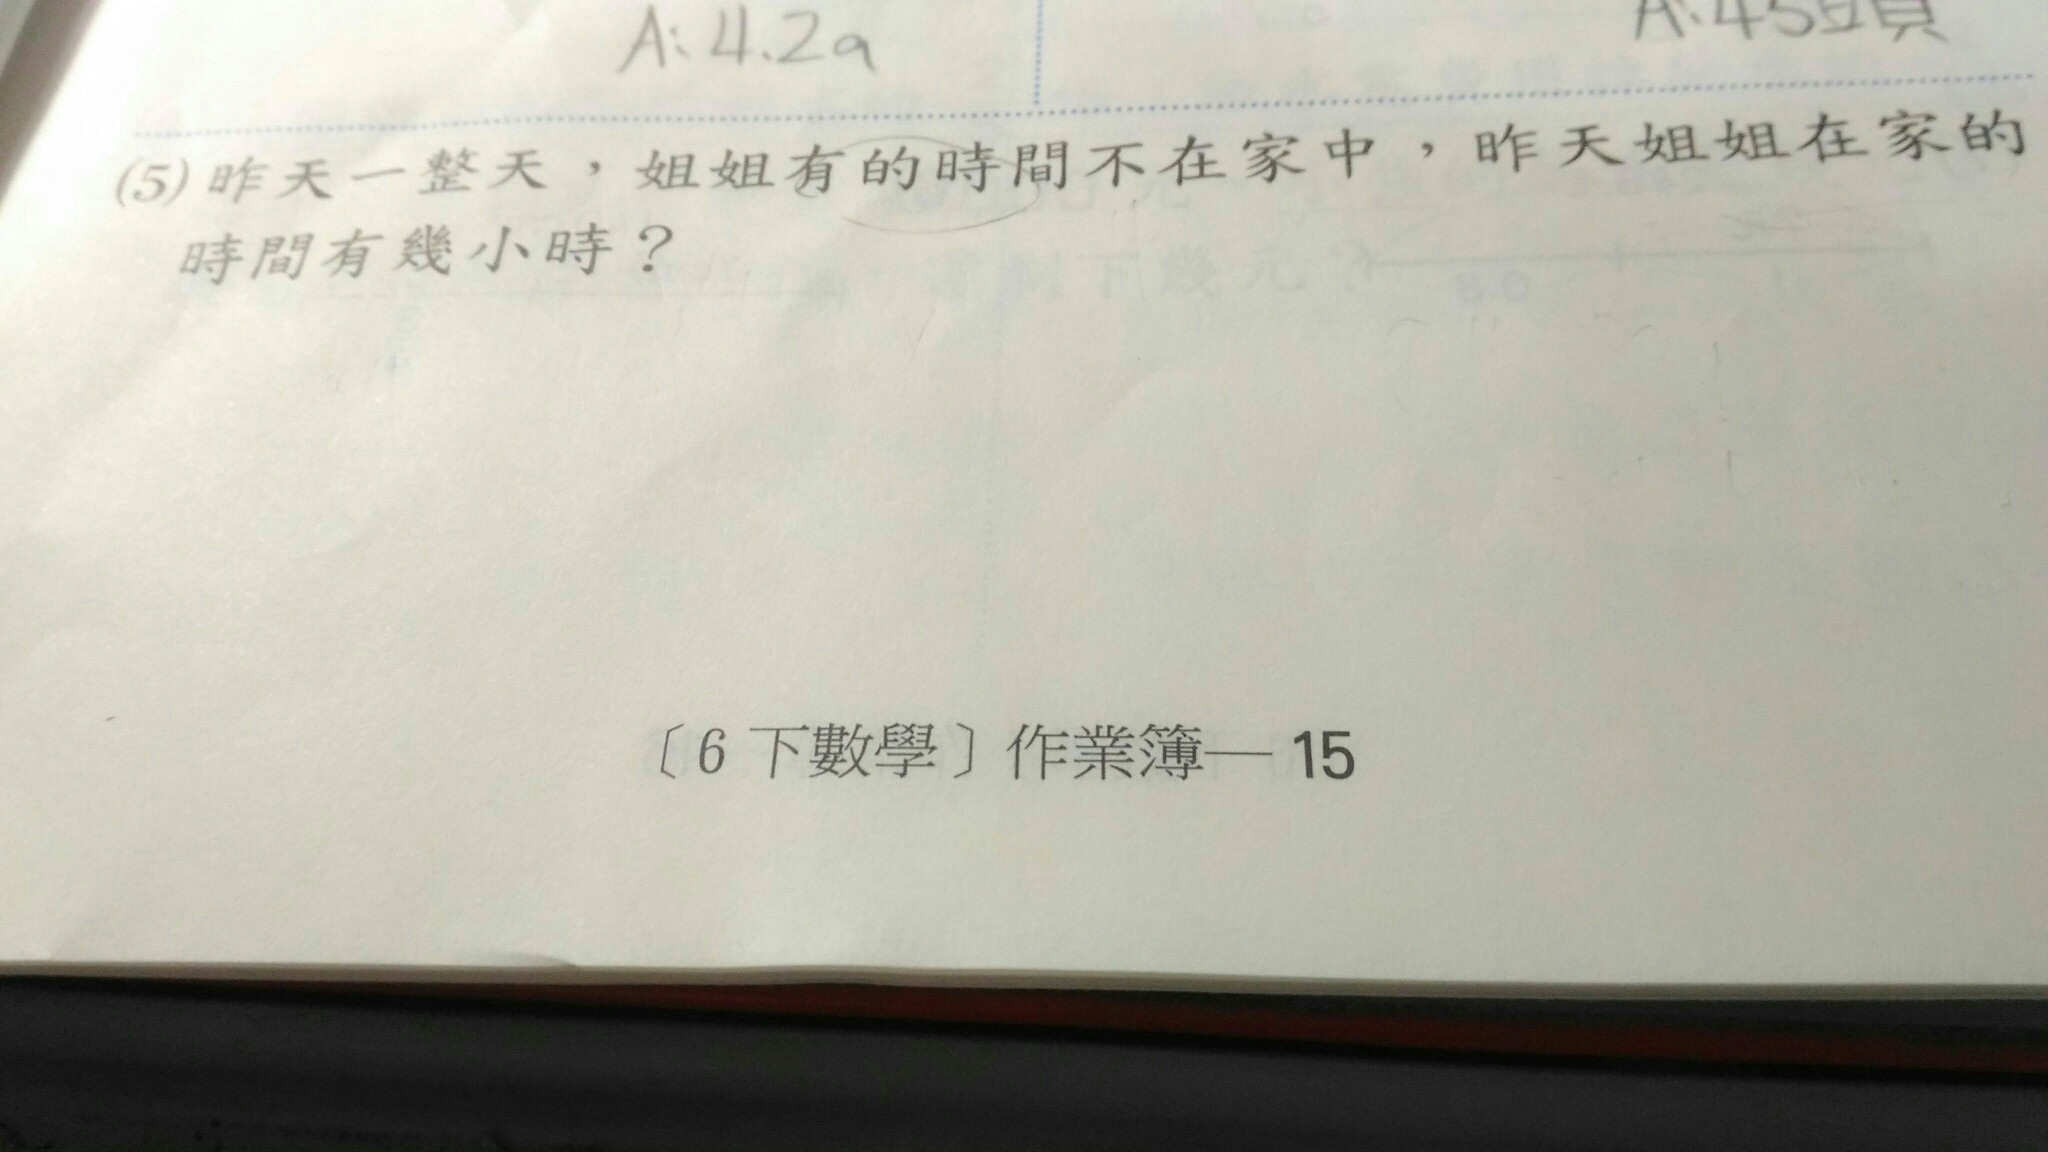 A:4.2a
A:45頭
(5)昨天一整天，姐姐有的時間不在家中，昨天姐姐在家的
時間有幾小時？
〔6下數學〕作業簿—15